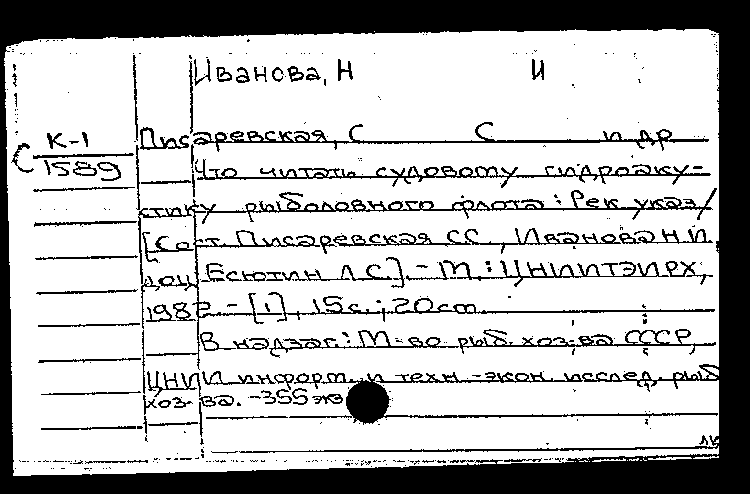 Иванова, Н И
К-1
1589
Писаревская, С С и др
Что читать судовому гидроаку-
стику рыболовного флота : Рек указ /
[Сост. Писаревская СС, Иванова Н И,
доц Есютин Л С]. - М. : ЦНИИТЭИРХ,
1982 - [1], 15с. ; 20см.
В надзаг.: М-во рыб. хоз-ва СССР,
ЦНИИ информ. и техн.-экон. исслед. рыб
хоз-ва. - 355 экз